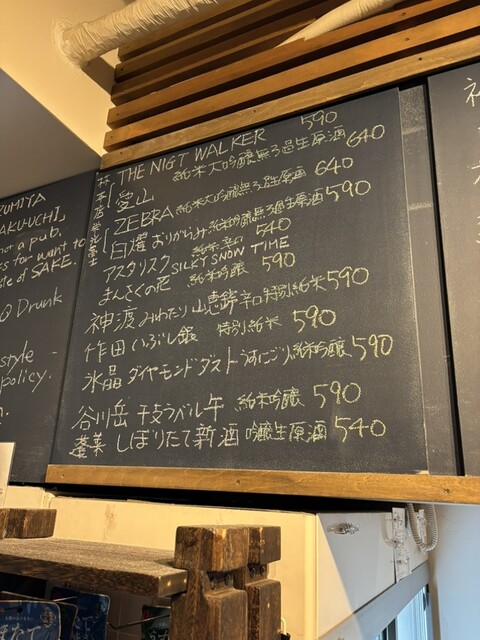 UMITA
AKU-UCHI」
not a pub.
es for want to
te of SAKE.
Drunk
style -
policy.
THE NIGT WALKER 590
純米大吟醸無ろ過生原酒 640
愛山
純米大吟醸無ろ過生原酒 640
ZEBRA 純米吟醸無ろ過生原酒 590
おりがらみ
アスタリスク 純米辛口 540
まんさくの花 純米吟醸 SILKY SNOW TIME 590
神渡 みわたり 山恵錦辛口特別純米 590
作田 いぶし銀 特別純米 590
氷晶 ダイヤモンドダスト うすにごり純米吟醸 590
谷川岳 干支ラベル午 純米吟醸 590
蓬莱 しぼりたて新酒 吟醸生原酒 540